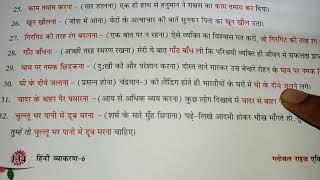 25. काम तमाम करना - (मार डालना) एक ही हाथ में हनुमान ने राक्षस का काम तमाम कर दिया।
26. खून खौलना - (जोश में आना) बेटों के अत्याचार की बातें सुनकर पिता का खून खौल उठा।
27. गिरगिट की तरह रंग बदलना - (एक बात पर न रहना) ऐसे व्यक्ति का विश्वास मत करो, जो गिरगिट की तरह रंग
28. गाँठ बाँधना - (अच्छी तरह स्मरण रखना) मेरी ये बात गाँठ बाँध लो कि परिश्रमी व्यक्ति ही जीवन में सफलता प्राप्त
29. घाव पर नमक छिड़कना - (दुःखी को और परेशान करना) दोस्त ताने मारकर उस बेचारे रोहन के घाव पर नमक
30. घी के दीये जलाना - (प्रसन्न होना) चंद्रयान-3 की लैंडिंग होते ही भारतीयों के घरों में घी के दीये जलने लगे।
31. चादर के बाहर पैर पसारना - (आय से अधिक व्यय करना) कुछ लोग दिखावे में चादर से बाहर
32. चुल्लू भर पानी में डूब मरना - (शर्म के मारे मुँह छिपाना) पढ़े-लिखे आदमी होकर भीख माँगते हो,
तुम्हें तो चुल्लू भर पानी में डूब मरना चाहिए।
हिंदी व्याकरण-6
ग्लोबल राइज